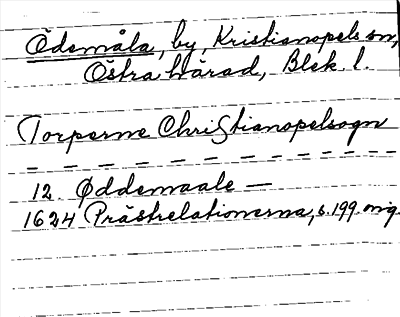 Ödemåla, by, Kristianopels sn,
Östra härad, Blek. l.
Torperne Christianopelsogn
— — — — — — — — — — —
12. Øddemaale —
1624 Prästrelationerna, s. 199. orig.